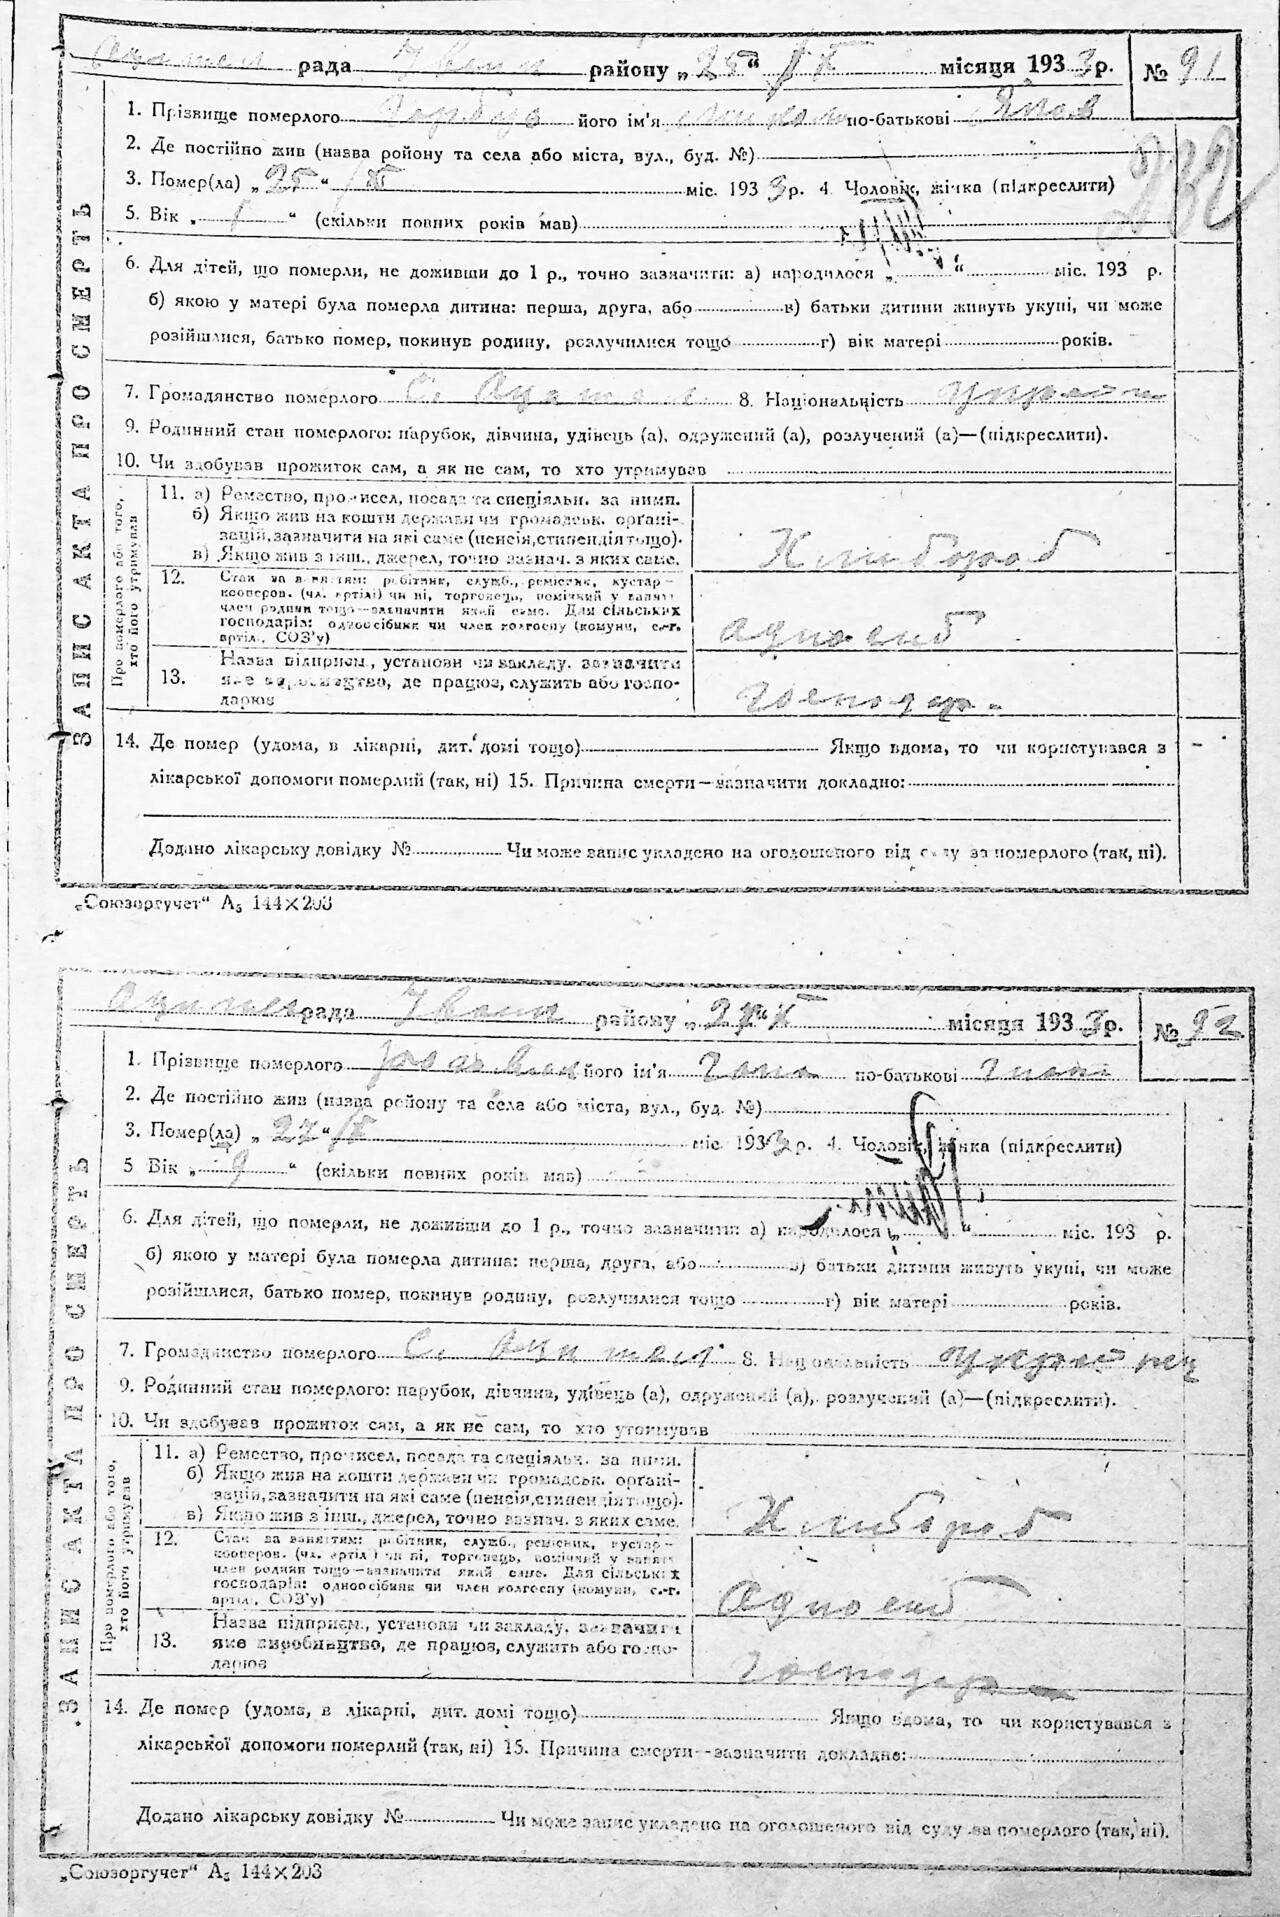 рада Іванк району „25“ ІХ місяця 1933 р. № 91
1. Прізвище померлого його ім'я по-батькові Яков
232
2. Де постійно жив (назва ройону та села або міста, вул., буд. №)
3. Помер(ла) „25“ /ІХ міс. 1933 р. 4. Чоловік, жінка (підкреслити)
5. Вік „1“ (скільки повних років мав)
6. Для дітей, що померли, не доживши до 1 р., точно зазначити: а) народилося „ “ міс. 193 р.
б) якою у матері була померла дитина: перша, друга, або в) батьки дитини живуть укупі, чи може
розійшлися, батько помер, покинув родину, розлучилися тощо г) вік матері років.
7. Громадянство померлого С. 8. Національність
9. Родинний стан померлого: парубок, дівчина, удівець (а), одружений (а), розлучений (а)—(підкреслити).
10. Чи здобував прожиток сам, а як не сам, то хто утримував
ЗАПИСКА ПРО СМЕРТЬ
Про померлого або того, хто його утримував
11. а) Ремество, промисел, посада та спеціяльн. за ними.
б) Якщо жив на кошти держави чи громадськ. орґані-
зацій, зазначити на які саме (пенсія, стипендія тощо).
в) Якщо жив з інш., джерел, точно зазнач. з яких саме.
Хлибороб
12. Стан за заняттям: робітник, служб., ремісник, кустар—
кооперов. (чл. артілі) чи ні, торговець, помічний у занятт
член родини тощо—зазначити який саме. Для сільських
господарів: одноосібник чи член колгоспу (комуни, с.-г.
артіл., СОЗ'у)
одноосіб
13. Назва підприєм., установи чи закладу, зазначити
яке виробництво, де працює, служить або госпо-
дарює
господар
14. Де помер (удома, в лікарні, дит. домі тощо) Якщо вдома, то чи користувався з
лікарської допомоги померлий (так, ні) 15. Причина смерти—зазначити докладно:
Додано лікарську довідку № Чи може запис укладено на оголошеного від суду за померлого (так, ні).
„Союзоргучет“ А5 144×203
рада Іванк району місяця 1933 р. № 92
1. Прізвище померлого його ім'я по-батькові
2. Де постійно жив (назва ройону та села або міста, вул., буд. №)
3. Помер(ла) „27“ /Х міс. 1933 р. 4. Чоловік, жінка (підкреслити)
5 Вік „9“ (скільки повних років мав)
6. Для дітей, що померли, не доживши до 1 р., точно зазначити: а) народилося „ “ міс. 193 р.
б) якою у матері була померла дитина: перша, друга, або в) батьки дитини живуть укупі, чи може
розійшлися, батько помер, покинув родину, розлучилися тощо г) вік матері років.
7. Громадянство померлого С. 8. Національність
9. Родинний стан померлого: парубок, дівчина, удівець (а), одружений (а), розлучений (а)—(підкреслити).
10. Чи здобував прожиток сам, а як не сам, то хто утримував
ЗАПИСКА ПРО СМЕРТЬ
Про померлого або того, хто його утримував
11. а) Ремество, промисел, посада та спеціяльн. за ними.
б) Якщо жив на кошти держави чи громадськ. орґані-
зацій, зазначити на які саме (пенсія, стипендія тощо).
в) Якщо жив з інш., джерел, точно зазнач. з яких саме.
Хлибороб
12. Стан за заняттям: робітник, служб., ремісник, кустар—
кооперов. (чл. артілі) чи ні, торговець, помічний у занятт
член родини тощо—зазначити який саме. Для сільських
господарів: одноосібник чи член колгоспу (комуни, с.-г.
артіл., СОЗ'у)
одноосіб
13. Назва підприєм., установи чи закладу, зазначити
яке виробництво, де працює, служить або госпо-
дарює
господар
14. Де помер (удома, в лікарні, дит. домі тощо) Якщо вдома, то чи користувався з
лікарської допомоги померлий (так, ні) 15. Причина смерти—зазначити докладно:
Додано лікарську довідку № Чи може запис укладено на оголошеного від суду за померлого (так, ні).
„Союзоргучет“ А5 144×203